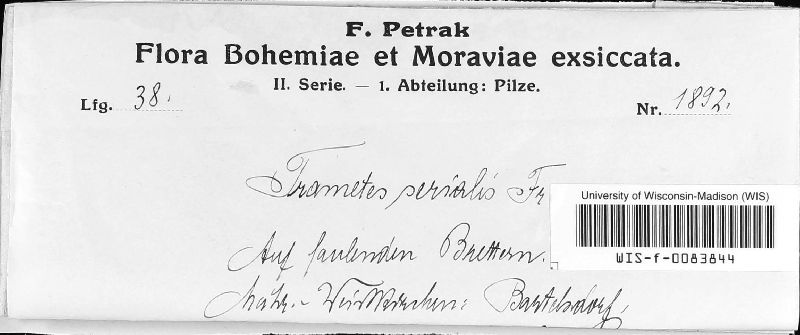 F. Petrak
Flora Bohemiae et Moraviae exsiccata.
II. Serie. — 1. Abteilung: Pilze.
Lfg. 38.
Nr. 1892.
Trametes serialis Fr
University of Wisconsin-Madison (WIS)
WIS-f-0083844
Auf faulenden Brettern.
Mähr.-Weisskirchen: Bartelsdorf,